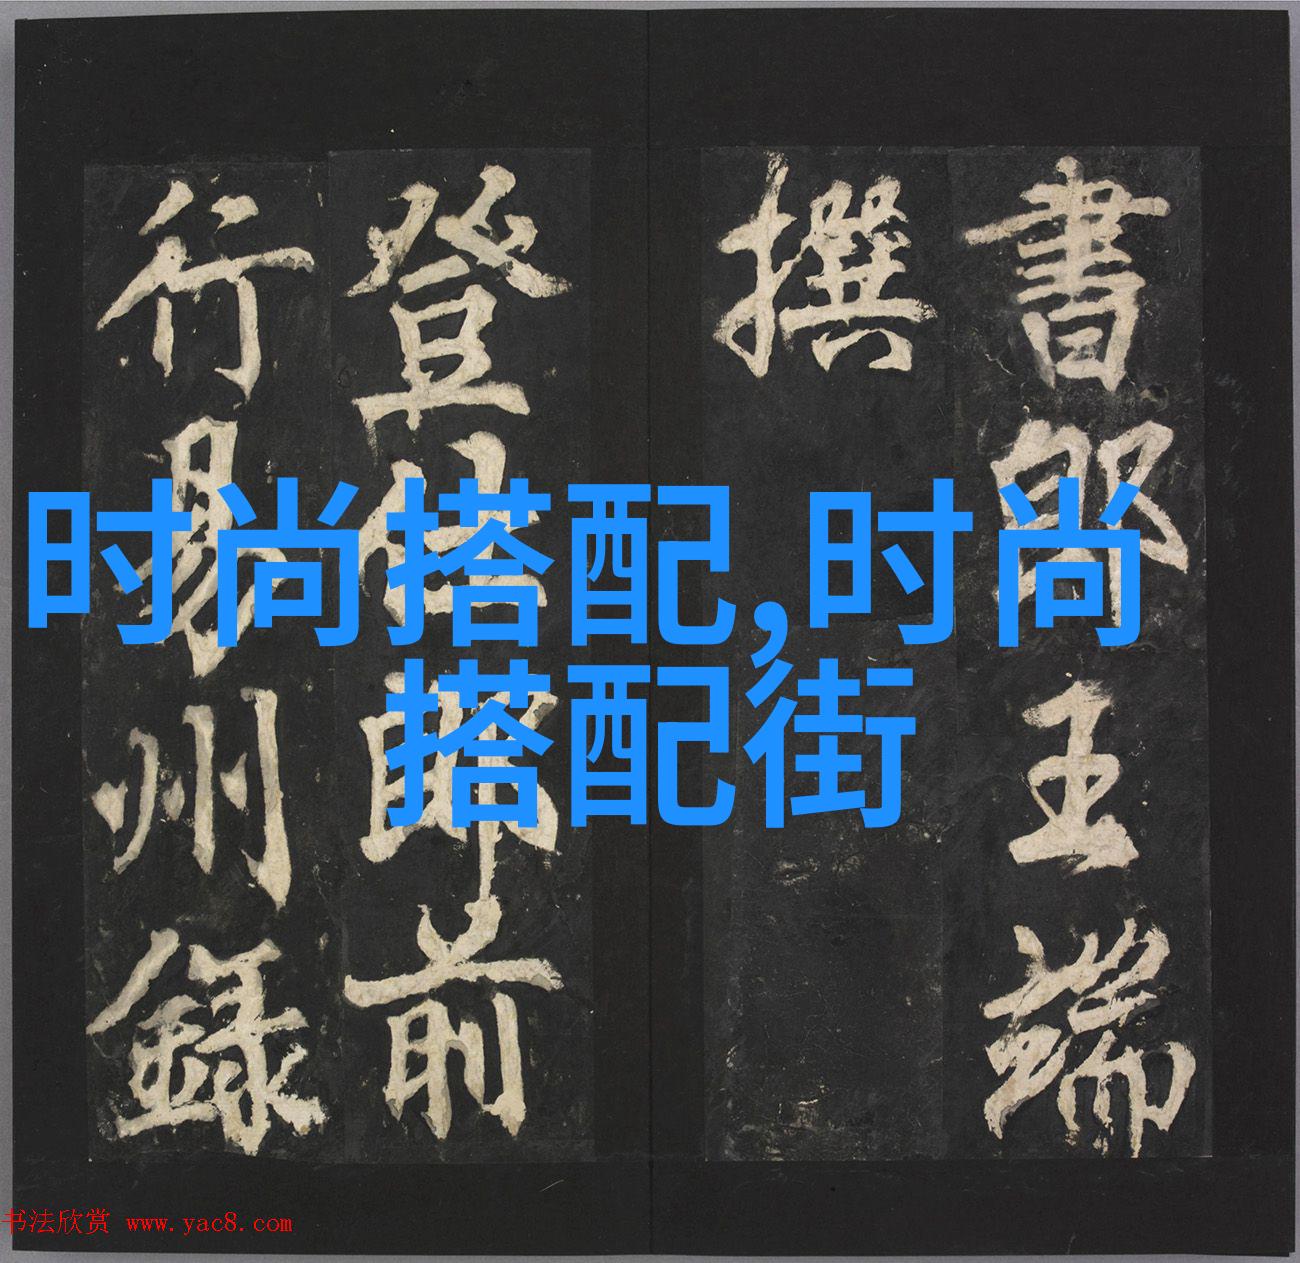 書郎王端
撰
登仕郎前
行易州錄
时尚搭配,时尚
搭配街
书法欣赏 www.yac8.com